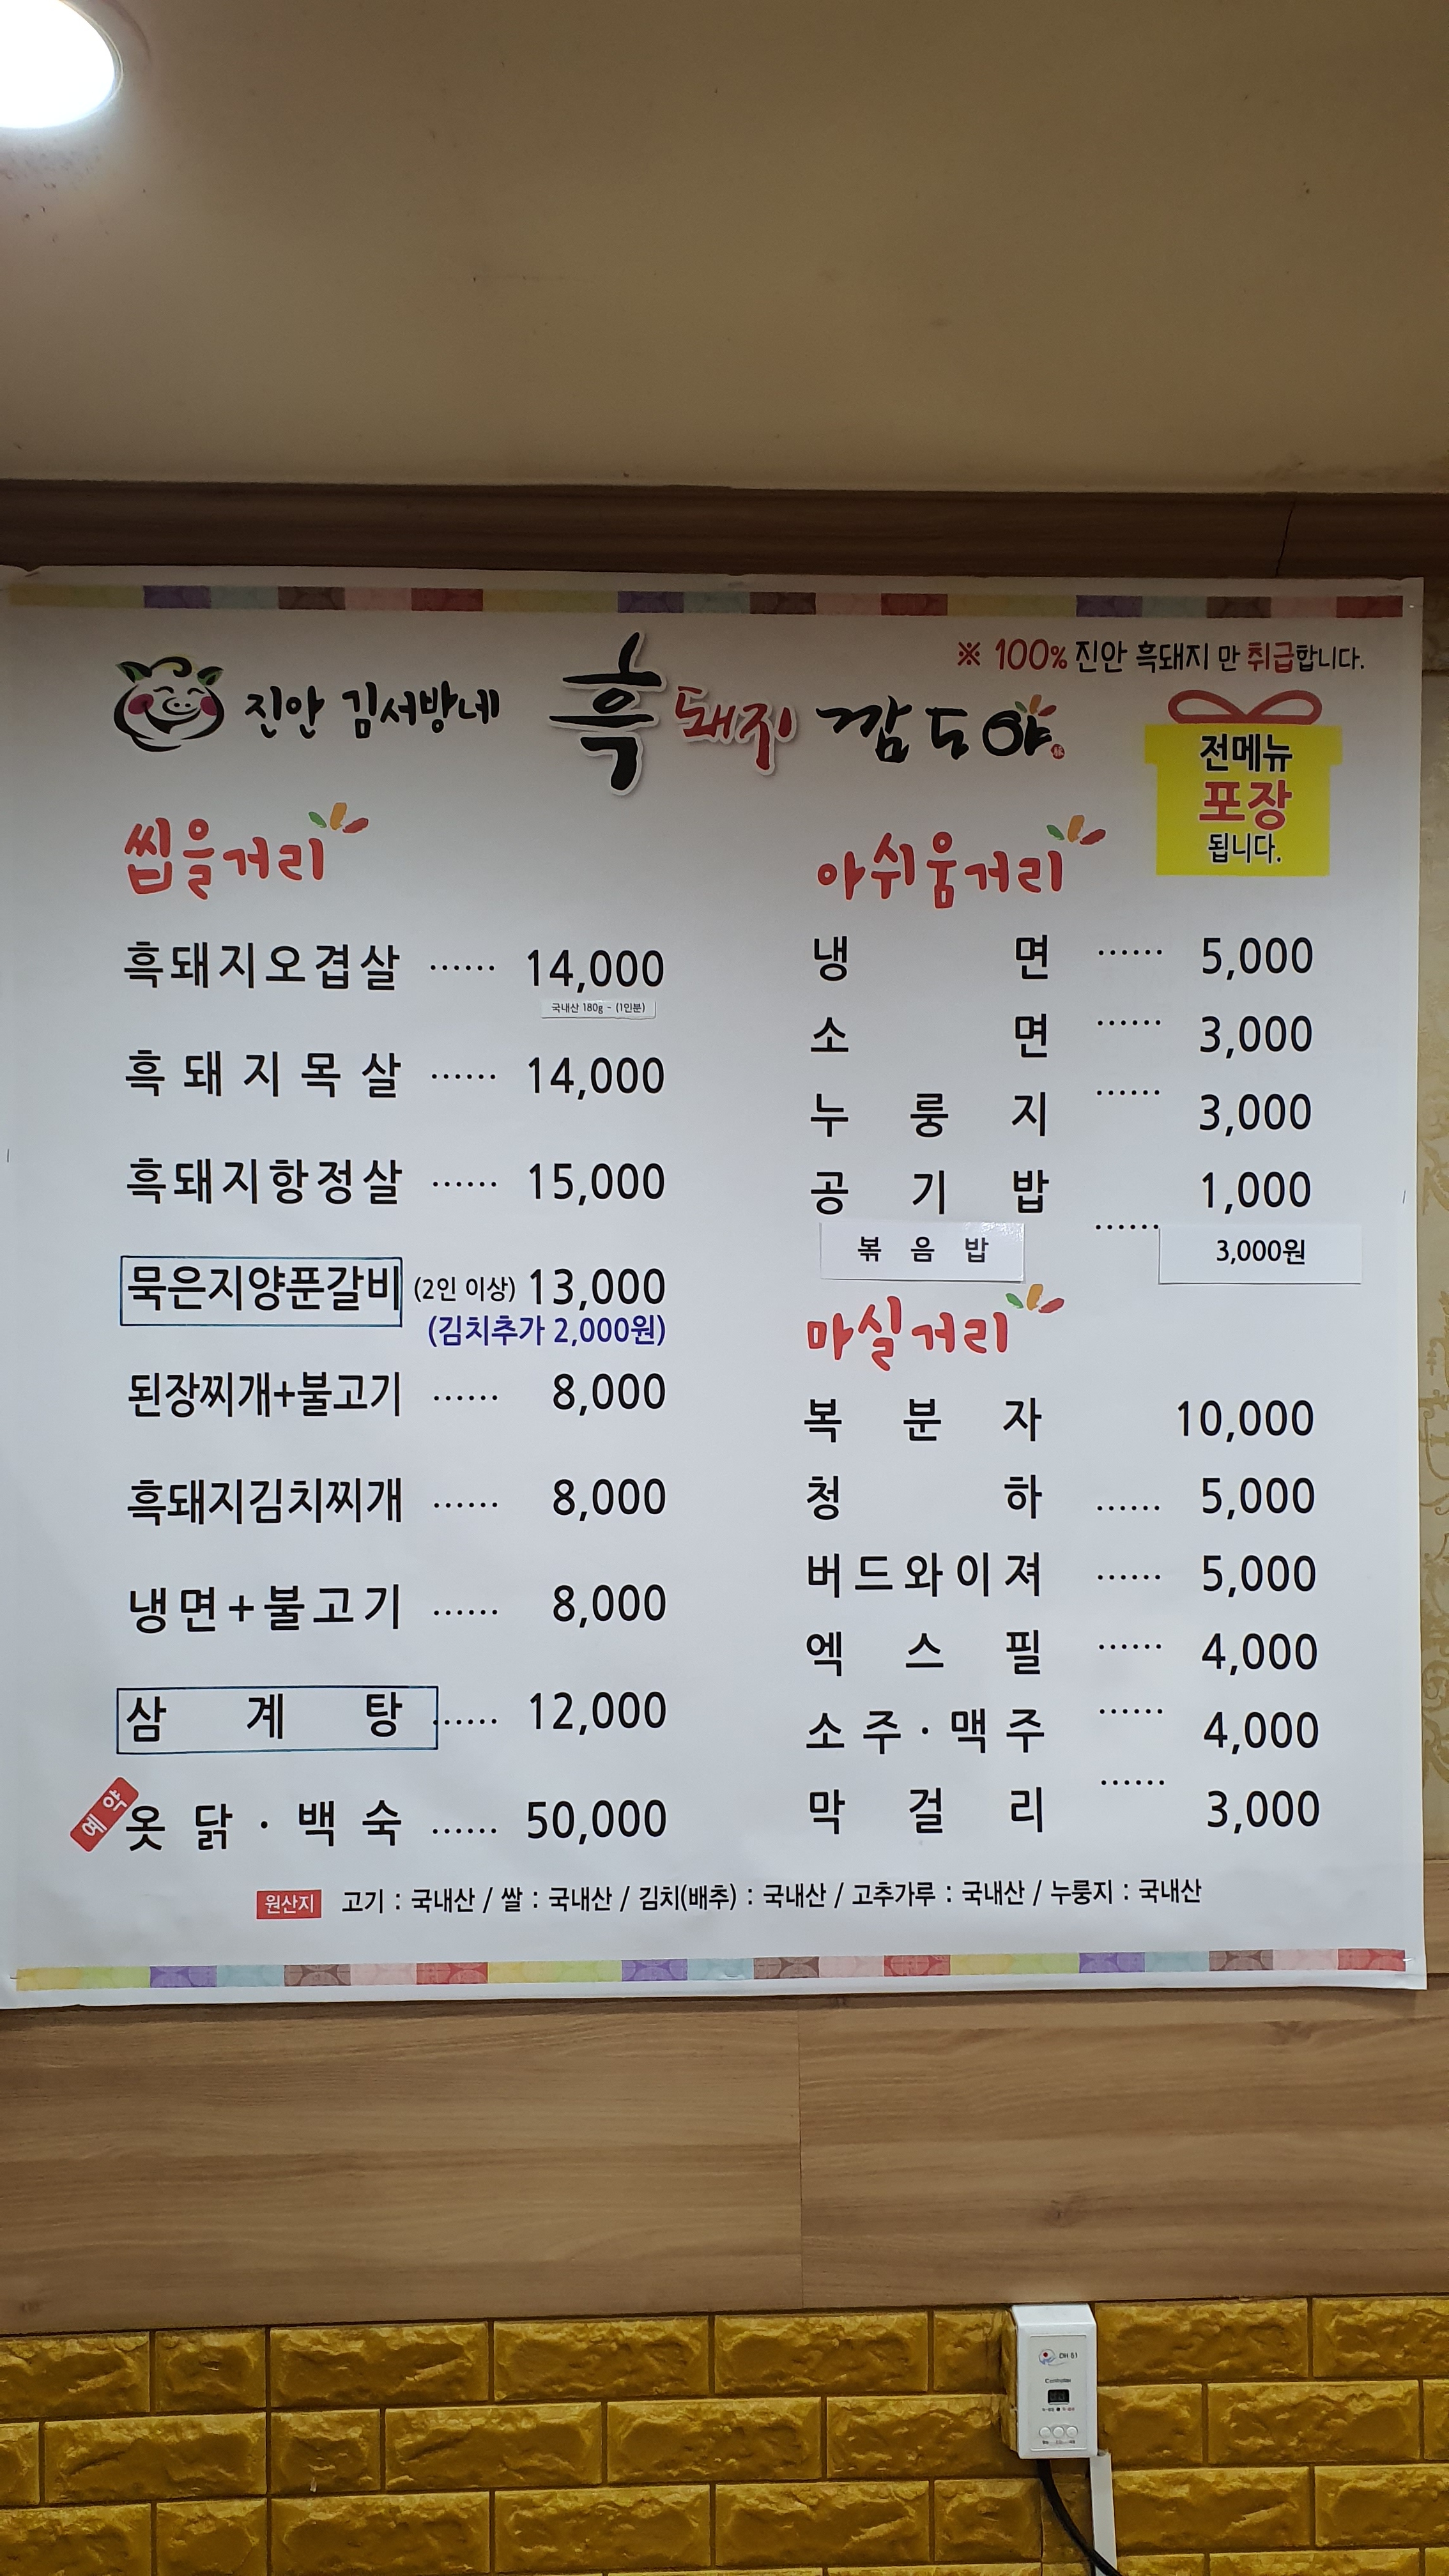 ※ 100% 진안 흑돼지 만 취급합니다.
진안 김서방네 흑돼지 깜도야
전메뉴
포장
됩니다.
씹을거리
흑돼지오겹살 ······ 14,000
국내산 180g - (1인분)
흑돼지목살 ······ 14,000
흑돼지항정살 ······ 15,000
묵은지양푼갈비 (2인 이상) 13,000
(김치추가 2,000원)
된장찌개+불고기 ······ 8,000
흑돼지김치찌개 ······ 8,000
냉면+불고기 ······ 8,000
삼계탕 ······ 12,000
예약 옷닭·백숙 ······ 50,000
아쉬움거리
냉면 ······ 5,000
소면 ······ 3,000
누룽지 ······ 3,000
공기밥 ······ 1,000
볶음밥 3,000원
마실거리
복분자 10,000
청하 ······ 5,000
버드와이져 ······ 5,000
엑스필 ······ 4,000
소주·맥주 ······ 4,000
막걸리 ······ 3,000
원산지 고기 : 국내산 / 쌀 : 국내산 / 김치(배추) : 국내산 / 고추가루 : 국내산 / 누룽지 : 국내산
Controller